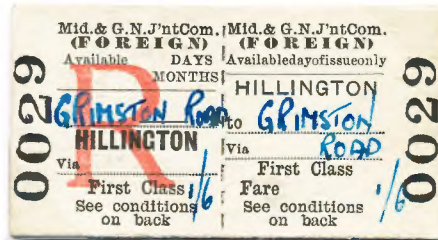 0029
Mid.& G.N.J'ntCom.
(FOREIGN)
Available DAYS
MONTHS
R
GRIMSTON ROAD
to
HILLINGTON
Via
First Class 1/6
See conditions
on back
Mid.& G.N.J'ntCom.
(FOREIGN)
Availabledayofissueonly
HILLINGTON
GRIMSTON
ROAD
Via
First Class
Fare 1/6
See conditions
on back
0029